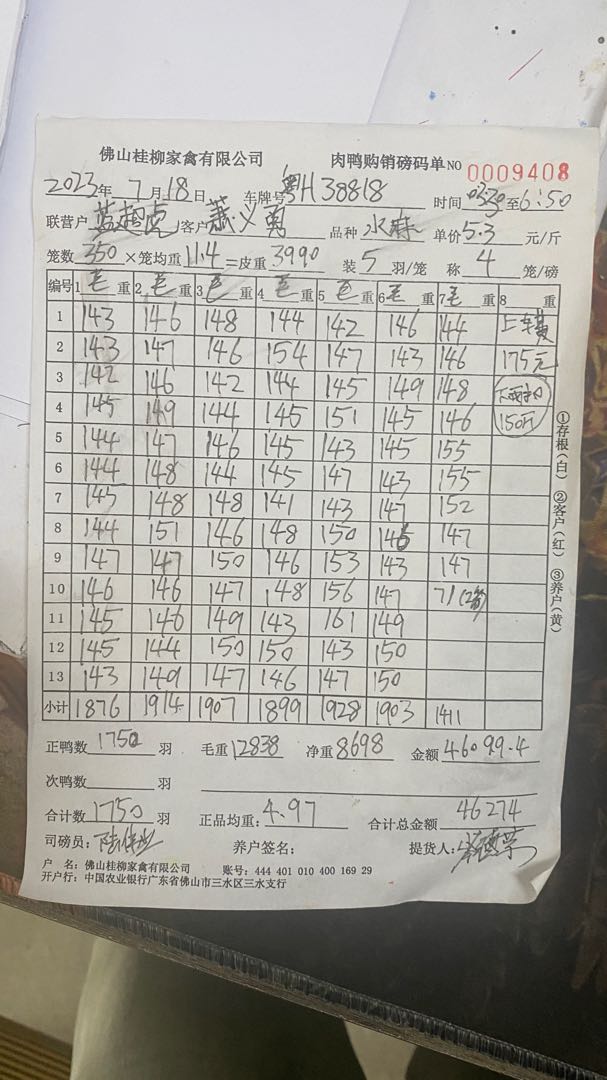 佛山桂柳家禽有限公司 肉鸭购销磅码单 NO 0009408
2023年 7月18日 车牌号 粤H38818 时间 至6:50
联营户 蓝超虎 客户 萧义勇 品种 水麻 单价5.3 元/斤
笼数 350 ×笼均重11.4=皮重3990 装5羽/笼 称4笼/磅
编号 1毛重 2毛重 3毛重 4毛重 5毛重 6毛重 7毛重 8 重
1 143 146 148 144 142 146 144 上车费
2 143 147 146 154 147 143 146 175元
3 142 146 142 144 145 149 148
4 145 149 144 145 151 145 146 150斤
5 144 147 146 145 143 145 155
6 144 148 144 145 147 143 155
7 145 148 148 141 143 147 152
8 144 151 146 148 150 146 147
9 147 147 150 146 153 143 147
10 146 146 147 148 156 147 71(2笼)
11 145 146 149 143 161 149
12 145 144 150 150 143 150
13 143 149 147 146 147 150
小计 1876 1914 1907 1899 1928 1903 1411
正鸭数 1750 羽 毛重12838 净重8698 金额46099.4
次鸭数 羽
合计数1750羽 正品均重:4.97 合计总金额 46274
司磅员: 养户签名: 提货人:
户 名: 佛山桂柳家禽有限公司 账号: 444 401 010 400 169 29
开户行: 中国农业银行广东省佛山市三水区三水支行
①存根(白) ②客户(红) ③养户(黄)